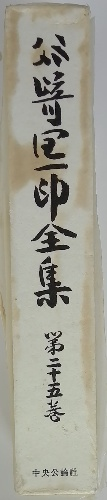 谷崎潤一郎全集
第二十五巻
中央公論社